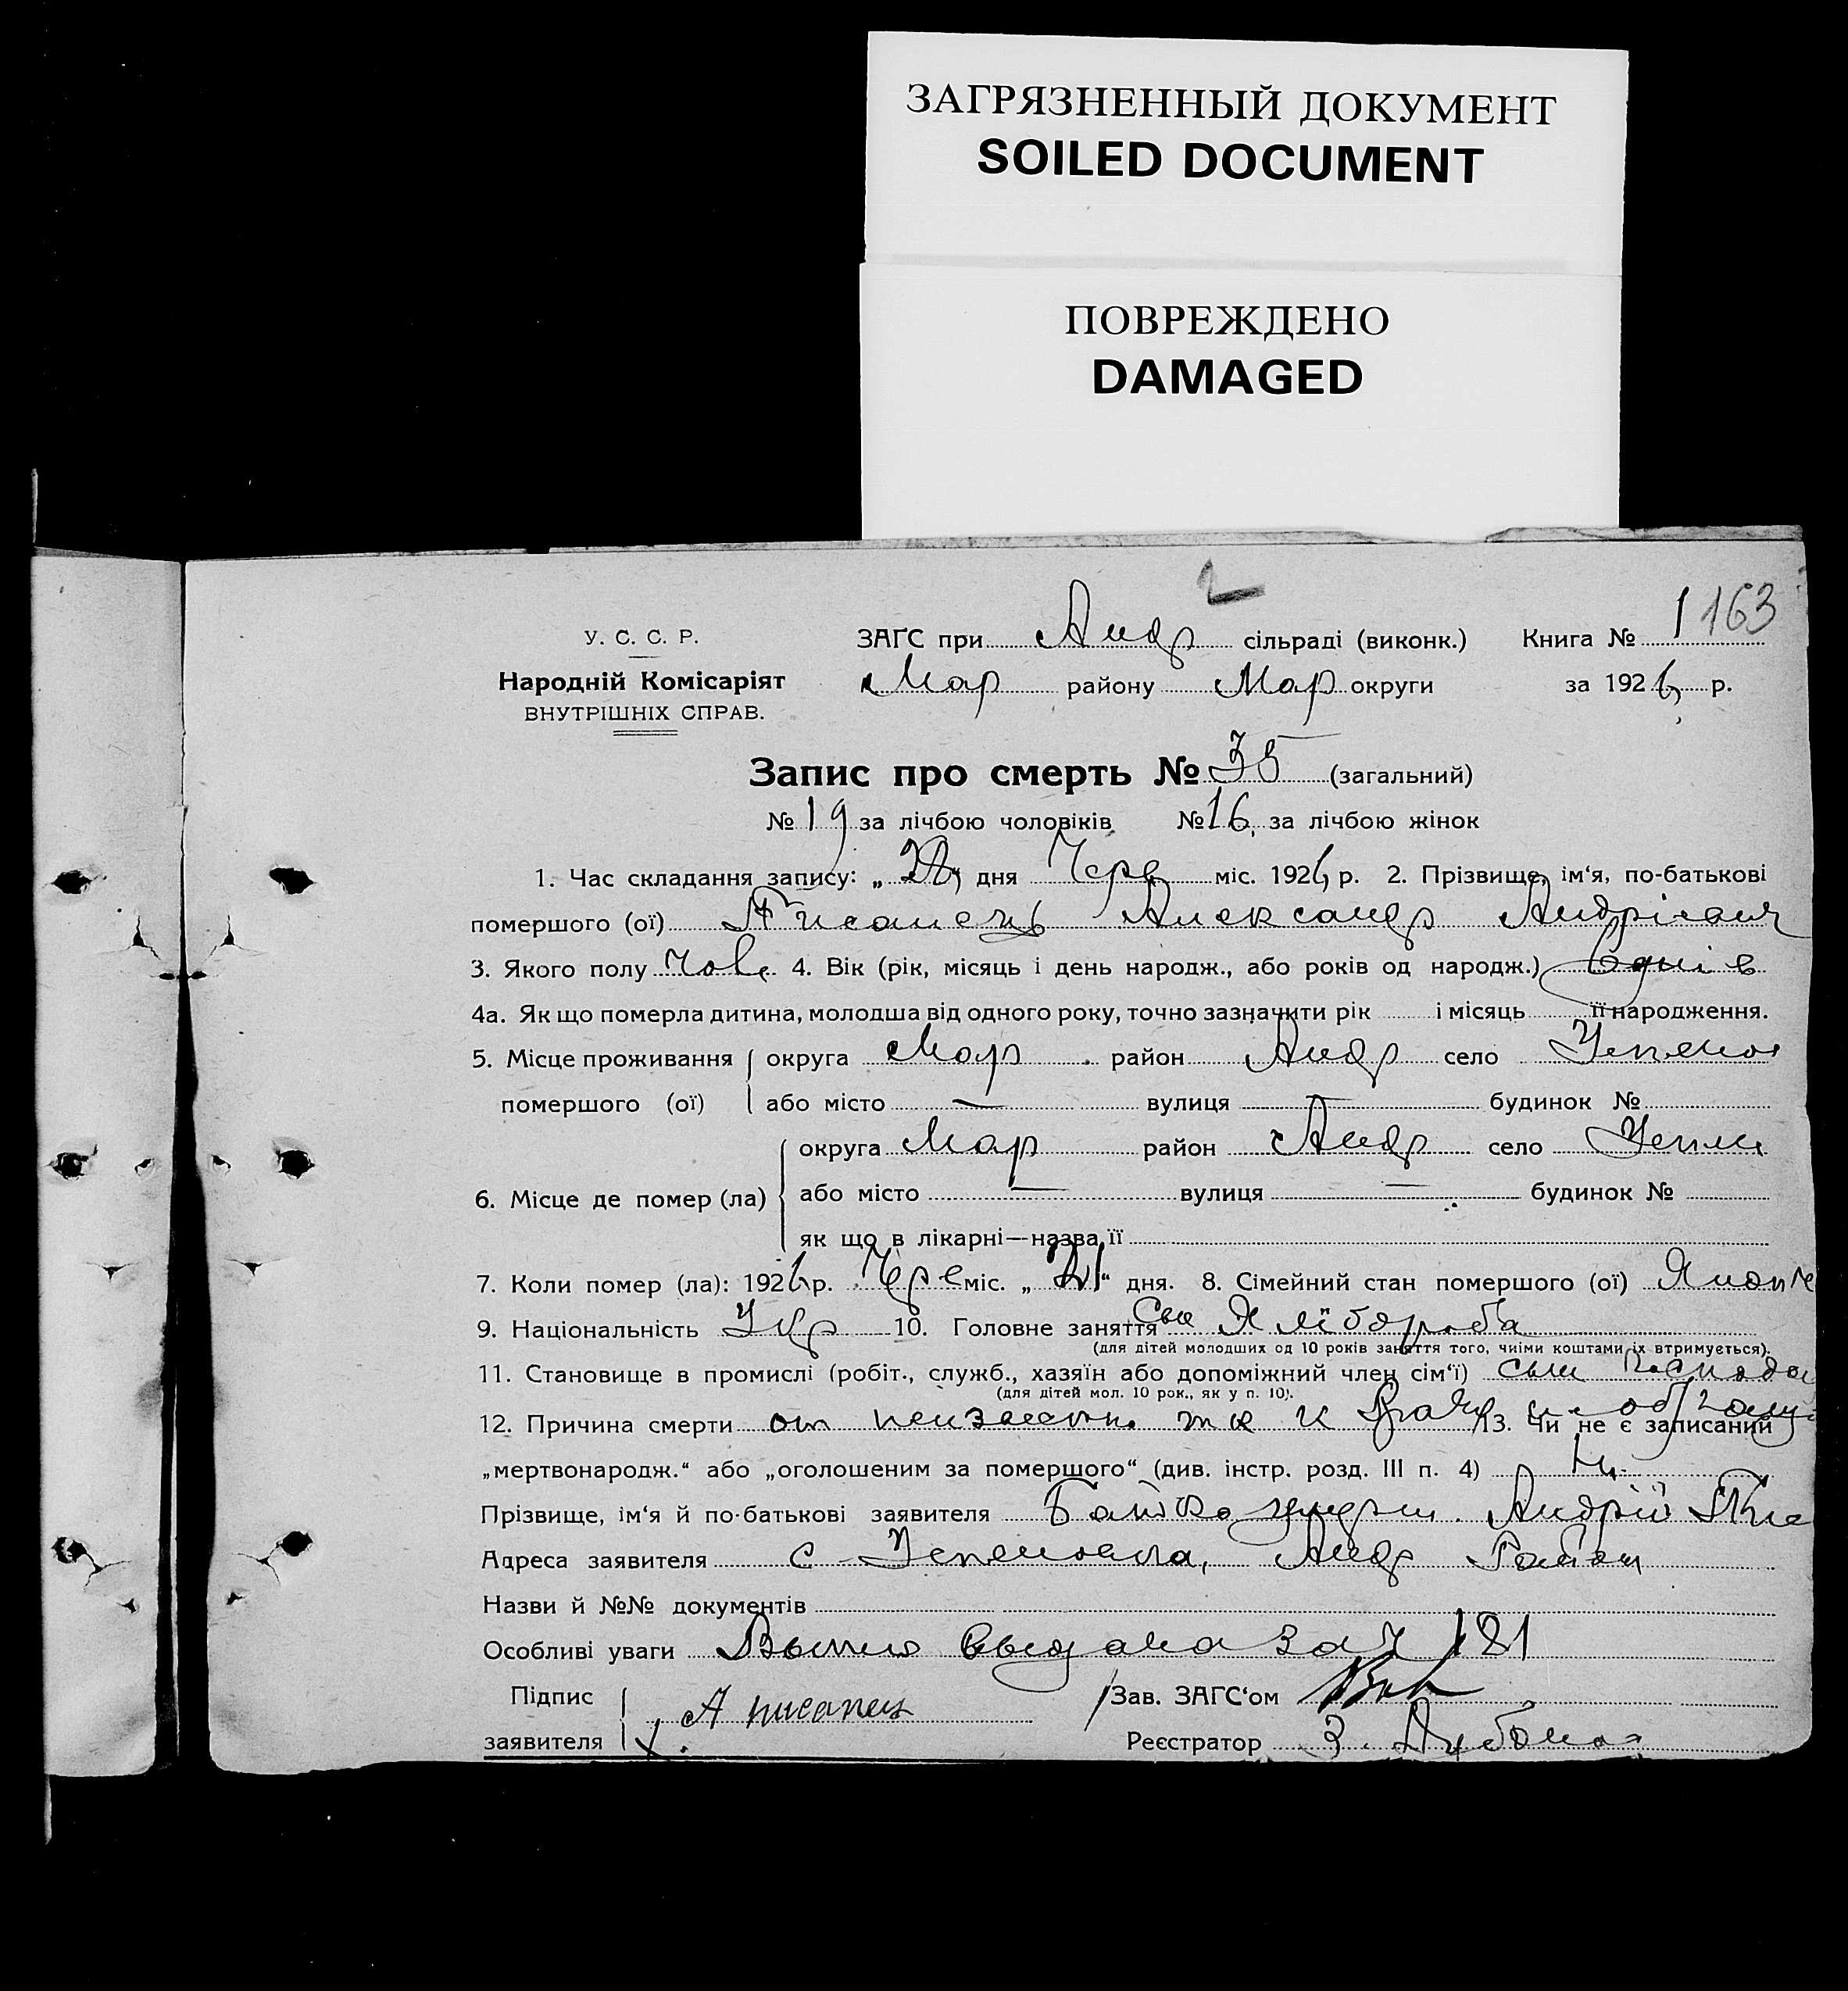 ЗАГРЯЗНЕННЫЙ ДОКУМЕНТ
SOILED DOCUMENT
ПОВРЕЖДЕНО
DAMAGED
2
У. С. С. Р.
Народній Комісаріят
ВНУТРІШНІХ СПРАВ.
ЗАГС при Андр сільраді (виконк.) Книга № 1 163
Мар району Мар округи за 1926 р.
Запис про смерть № 35 (загальний)
№ 19 за лічбою чоловіків № 16 за лічбою жінок
1. Час складання запису: „ дня Черв міс. 1926 р. 2. Прізвище, ім‘я, по-батькові
помершого (ої) Александр Андрієвич
3. Якого полу Чов. 4. Вік (рік, місяць і день народж., або років од народж.) 6 днів
4а. Як що померла дитина, молодша від одного року, точно зазначити рік і місяць її народження.
5. Місце проживання округа Мар район Андр село Успенов
помершого (ої) або місто — вулиця — будинок №
6. Місце де помер (ла) округа Мар район Андр село Успен
або місто — вулиця — будинок №
як що в лікарні—назва її
7. Коли помер (ла): 1926 р. Черв міс. „ 21 “ дня. 8. Сімейний стан помершого (ої)
9. Національність Укр 10. Головне заняття Син Хлібороба
(для дітей молодших од 10 років заняття того, чиїми коштами їх втримується).
11. Становище в промислі (робіт., служб., хазяїн або допоміжний член сім‘ї) сын Господа
(для дітей мол. 10 рок., як у п. 10).
12. Причина смерти от неизвестн. тк к врачу не обращ 13. Чи не є записаний
„мертвонародж.“ або „оголошеним за помершого“ (див. інстр. розд. III п. 4) Ні.
Прізвище, ім‘я й по-батькові заявителя Батько Андрій
Адреса заявителя с Успеновка, Андр Район
Назви й №№ документів
Особливі уваги Выпис выдана за № 181
Підпис заявителя А писанец Зав. ЗАГС‘ом
Реєстратор З.